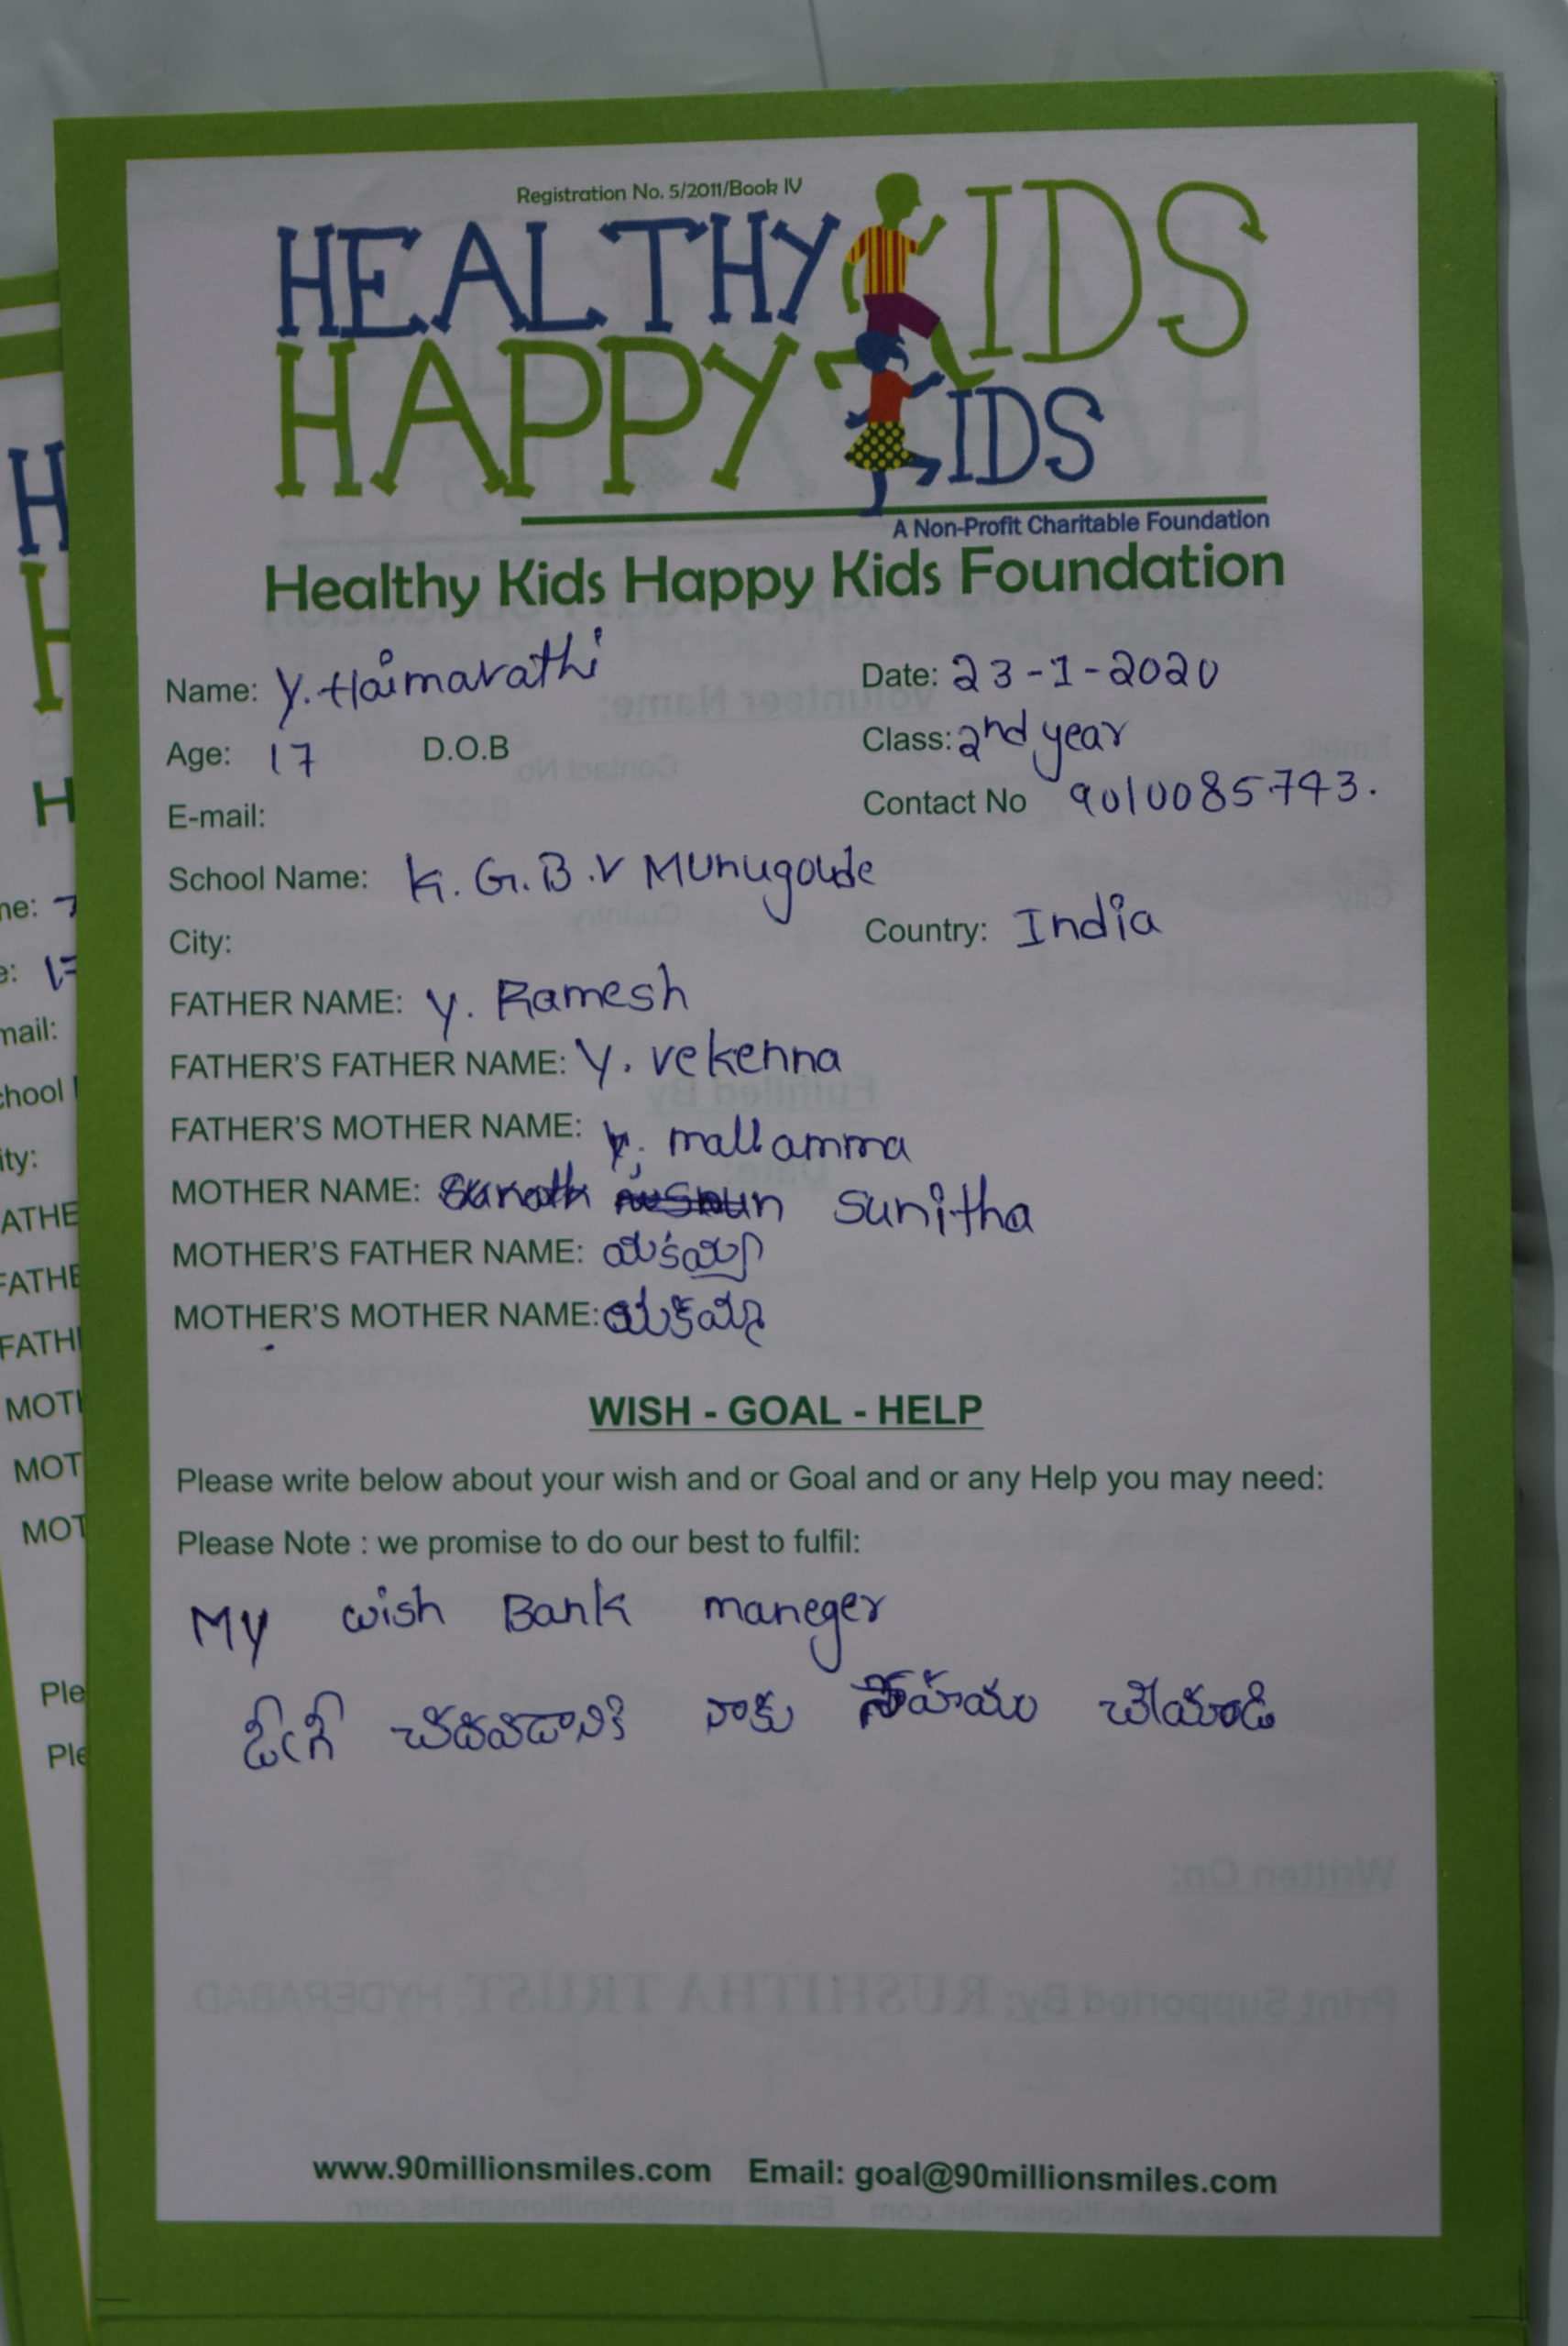 Registration No. 5/2011/Book IV
HEALTHY KIDS
HAPPY KIDS
A Non-Profit Charitable Foundation
Healthy Kids Happy Kids Foundation
Name: Y. Haimavathi Date: 23-1-2020
Age: 17 D.O.B Class: 2nd year
E-mail: Contact No 9010085743.
School Name: K. G. B. V Munugode
City: Country: India
FATHER NAME: Y. Ramesh
FATHER'S FATHER NAME: Y. vekenna
FATHER'S MOTHER NAME: Y. mallamma
MOTHER NAME: Sunitha
MOTHER'S FATHER NAME:
MOTHER'S MOTHER NAME:
WISH - GOAL - HELP
Please write below about your wish and or Goal and or any Help you may need:
Please Note : we promise to do our best to fulfil:
My wish Bank maneger
డిగ్రీ చదవడానికి నాకు సహయం చేయండి
www.90millionsmiles.com Email: goal@90millionsmiles.com